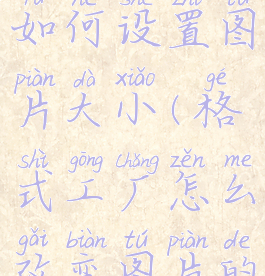 rú hé shè zhì tú
如何设置图
piàn dà xiǎo gé
片大小(格
shì gōng chǎng zěn me
式工厂怎么
gǎi biàn tú piàn de
改变图片的